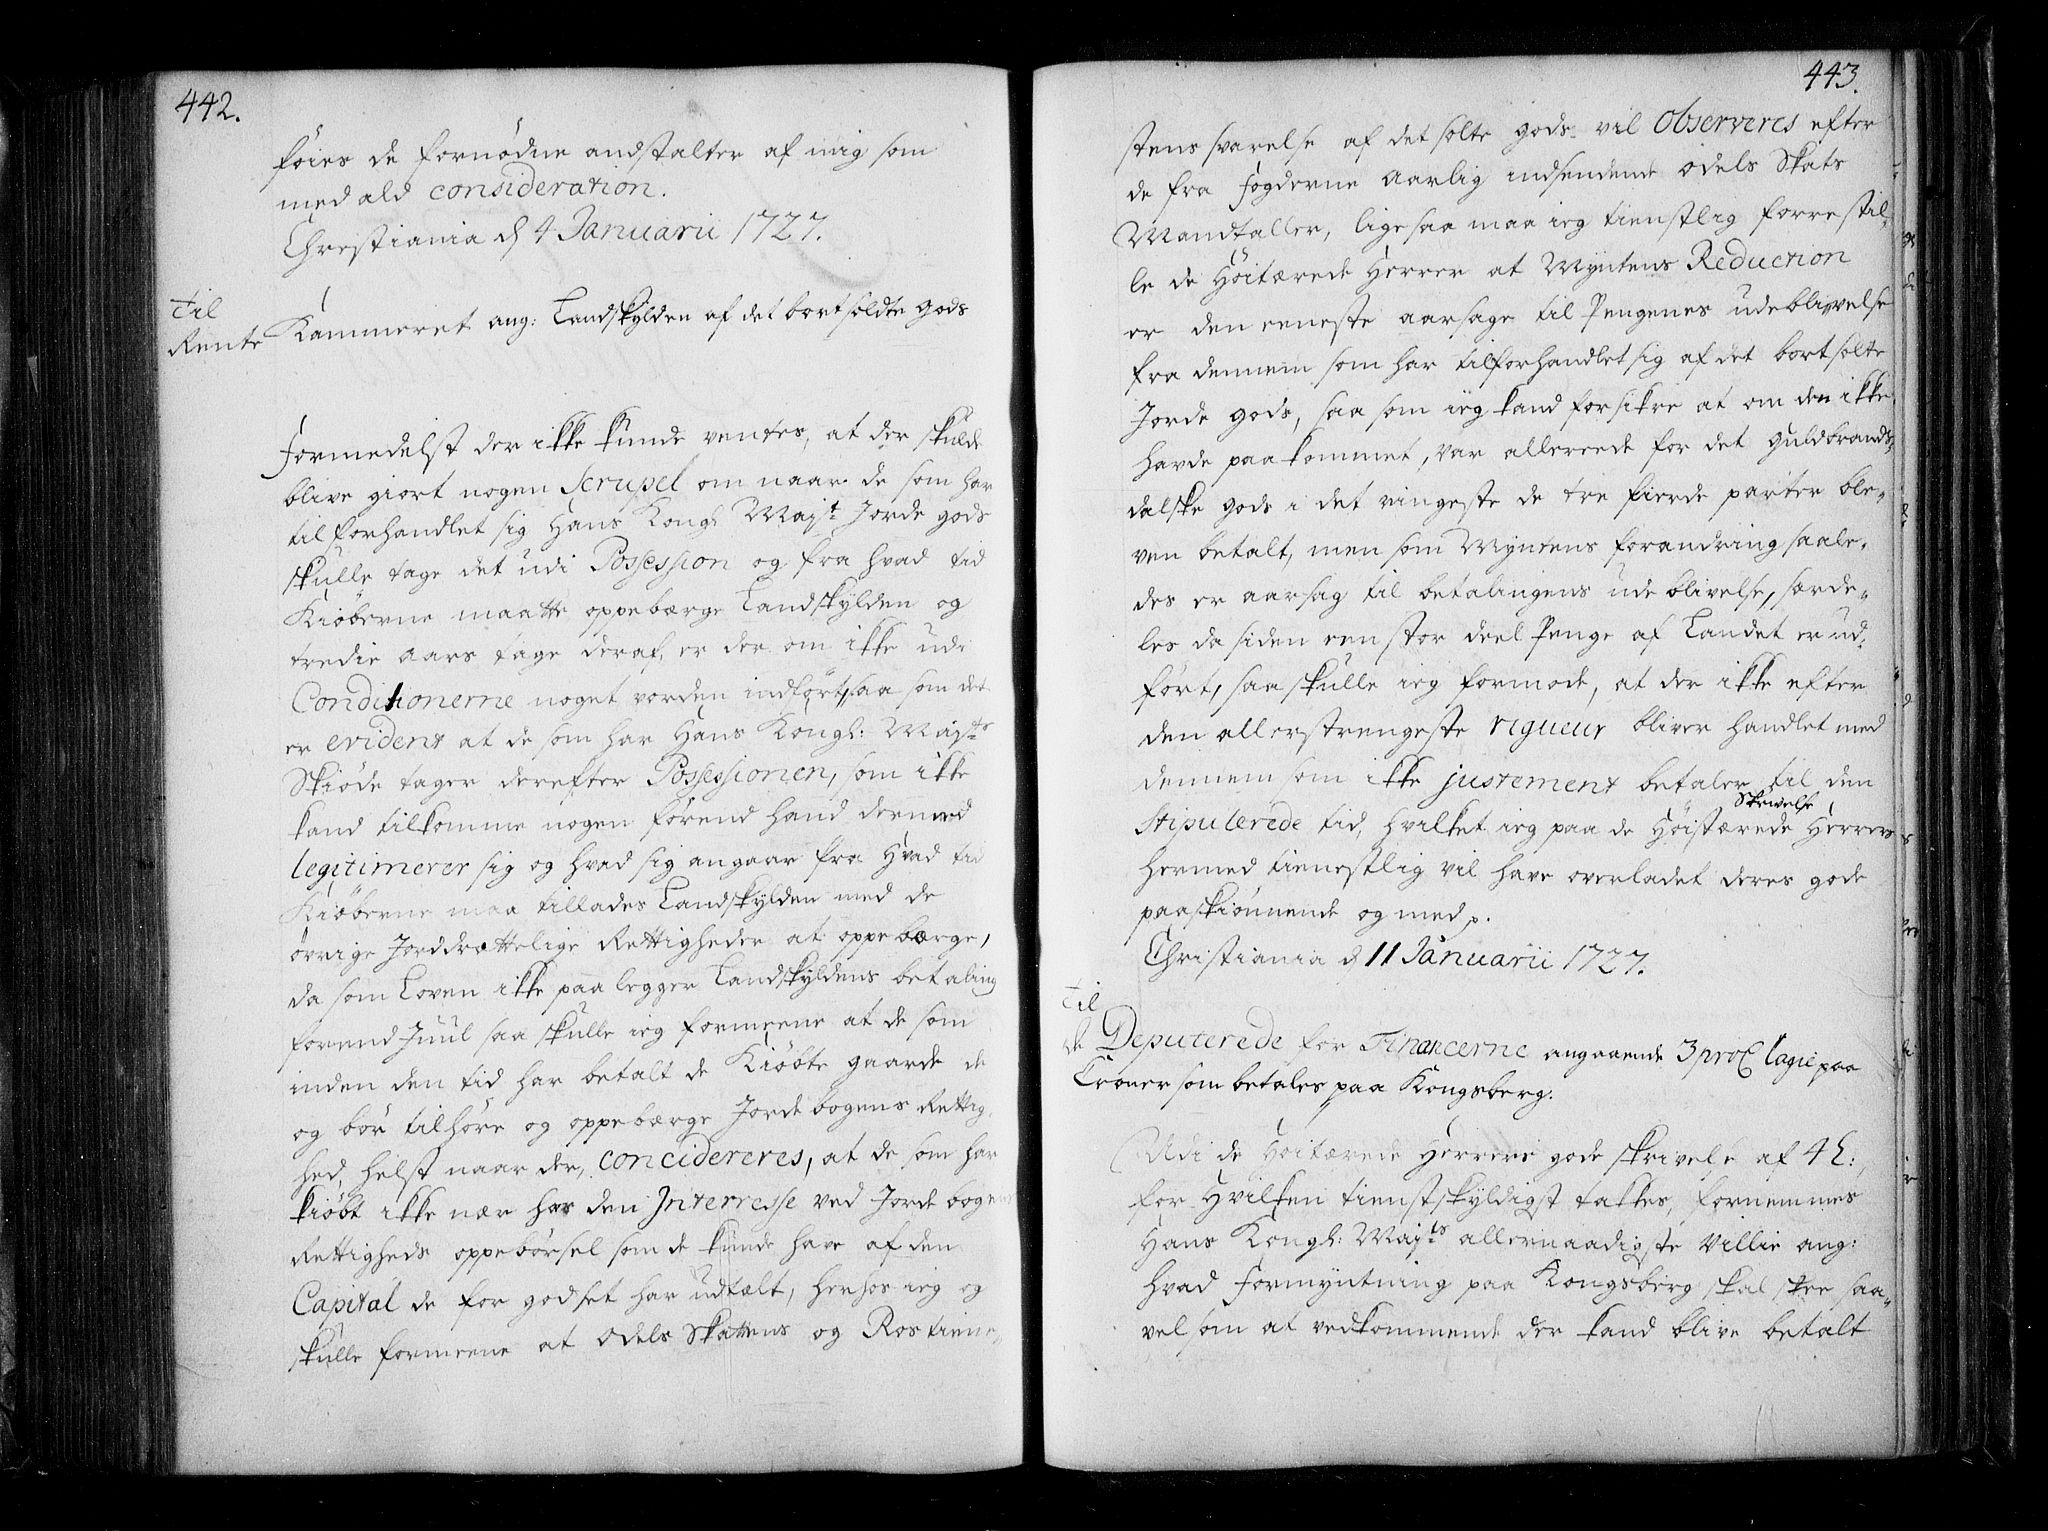 442.
føies de fornødne andstalter af mig som
med ald consideration.
Chrestiania d 4 Januarii 1727.
Til
Rente Kammeret ang: Landskylden af det bortsoldte gods
Formedelst der ikke kunde ventes, at der skulde
blive giort nogen Scrupel om naar de som har
tilforhandlet sig Hans Kongl Mayt Jorde gods
skulle tage det udi Possession og fra hvad tid
Kiøberne maatte oppebærge Landskylden og
tredie Aars tage deraf, er der om ikke udi
Conditionerne noget vorden indført, saa som det
er evident at de som har Hans Kongl: Mayts
Skiøde tager derefter Possessionen, som ikke
kand tilkomme nogen førend hand dermed
legitimerer sig og hvad sig angaar fra Hvad tid
Kiøberne maa tillades Landskylden med de
øvrige Jorddrottelige Rettigheder at oppebærge,
da som Loven ikke paalegger Landskyldens betaling
forend Juul saa skulle ieg formeene at de som
inden den tid har betalt de Kiøbte gaarde de
og bør tilhøre og oppebærge Jordebogens Rettig,
hed, helst naar der, concidereres, at de som har
kiøbt ikke nær har den Interresse ved Jordebogens
Rettigheds oppebørsel som de kunde have af den
Capital de for godset har udtælt, herhos ieg og
skulle formeene at Odels Skattens og Rostiene„
443.
stens svarelse af det solte gods vil Observeres efter
de fra Fogderne Aarlig indsendende Odels Skats
Mandtaller, ligesaa maa ieg tienstlig forrestil„
le de Høitærede Herrer at Myntens Reduction
er den eeneste aarsage til Pengenes udeblivelse
fra dennem som har tilforhandlet sig af det bortsolte
Jorde gods, saa som ieg kand forsikre at om den ikke
havde paakommet, var allereede for det guldbrands„
dalske gods i det ringeste de tre fierde parter ble„
ven betalt, men som Myntens forandring saale„
des er aarsag til betalingens udeblivelse, særde„
les da siden een stor deel Penge af Landet er ud„
ført, saa skulle ieg formode, at der ikke efter
den allerstrengeste rigueur bliver handlet med
dennem som ikke justement betaler til den
Skrivelse
Stipulerede tid, hvilket ieg paa de Høistærede Herrers
hermed tienestlig vil have overladet deres gode
paaskiønnende og med p.
Christiania d 11 Januarii 1727.
Til
de Deputerede for Financerne angaaende 3 proC lagie paa
Croner som betales paa Kongsberg.
Udi de Høitærede Herrers gode skrivelse af 4 h:,
for Hvilken tienstskyldigst takkes, fornemmes
Hans Kongl: Mayts allernaadigste Villie ang:
hvad Formyntning paa Kongsberg skal skee saa„
vel som at vedkommende der kand blive betalt